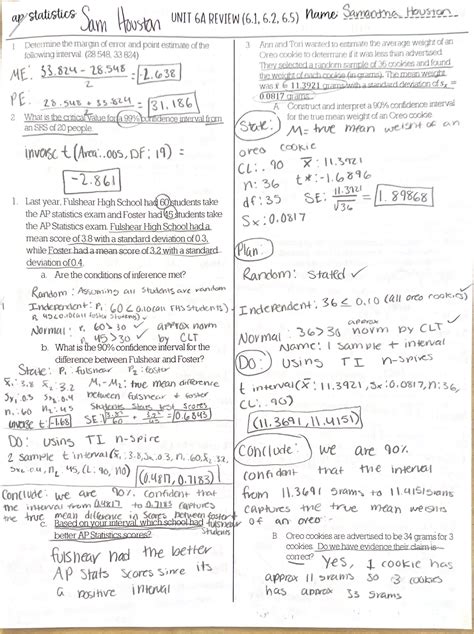 ap statistics Sam Houston UNIT 6A REVIEW (6.1, 6.2, 6.5) Name: Samantha Houston
1 Determine the margin of error and point estimate of the
following interval (28.548, 33.824)
ME: 33.824 - 28.548 = -2.638
2
PE: 28.548 + 33.824 = 31.186
2 What is the critical value for a 99% confidence interval from
an SRS of 20 people.
inverse t (Area: .005, DF: 19) =
-2.861
1. Last year, Fulshear High School had 60 students take
the AP statistics exam and Foster had 45 students take
the AP Statistics exam. Fulshear High School had a
mean score of 3.8 with a standard deviation of 0.3,
while Foster had a mean score of 3.2 with a standard
deviation of 0.4.
a. Are the conditions of inference met?
Random: Assuming all students are random
Independent: P1 60 ≤ 0.10 (all FHS students)
P2 45 ≤ 0.10 (all foster students)
Normal: P1 60 > 30 ✓ approx norm
P2 45 > 30 ✓ by CLT
b. What is the 90% confidence interval for the
difference between Fulshear and Foster?
State: P1: fulshear P2: foster
x̄1: 3.8 x̄2: 3.2 M1-M2: true mean difference
Sx1 0.3 Sx2 0.4 between fulshear & foster
n1: 60 n2: 45 students stats test scores
inverse t: -1.68 SE = 0.6845
Do: using TI n-spire
2 sample t interval (x̄1: 3.8, Sx1 0.3, n1 60, x̄2 3.2,
Sx2 0.4, n2 45, CL: 90, no) (0.4817, 0.7183)
Conclude: we are 90% confident that
the interval from 0.4817 to 0.7183 captures
the true mean difference in scores between foster &
fulshear students
c. Based on your interval, which school had
better AP Statistics scores?
fulshear had the better
AP Stats scores since its
a positive interval
3 Ann and Tori wanted to estimate the average weight of an
Oreo cookie to determine if it was less than advertised.
They selected a random sample of 36 cookies and found
the weight of each cookie (in grams). The mean weight
was x̄ = 11.3921 grams with a standard deviation of sx =
0.0817 grams.
A. Construct and interpret a 90% confidence interval
for the true mean weight of an Oreo cookie.
State: M = true mean weight of an
oreo cookie
CL: .90 x̄: 11.3921
n: 36 t*: -1.6896
df: 35 SE: 11.3921 = 1.89868
√36
Sx: 0.0817
Plan:
Random: stated ✓
Independent: 36 ≤ 0.10 (all oreo cookies)
Normal: 36 > 30 approx norm by CLT ✓
Name: 1 Sample t interval
Do: using TI n-spires
t interval (x̄: 11.3921, Sx: 0.0817, n: 36,
CL: .90)
(11.3691, 11.4151)
Conclude: we are 90%
confident that the interval
from 11.3691 grams to 11.4151 grams
captures the true mean weight
of an oreo.
B Oreo cookies are advertised to be 34 grams for 3
cookies. Do we have evidence their claim is
correct? Yes, 1 cookie has
approx 11 grams so 3 cookies
has approx 33 grams